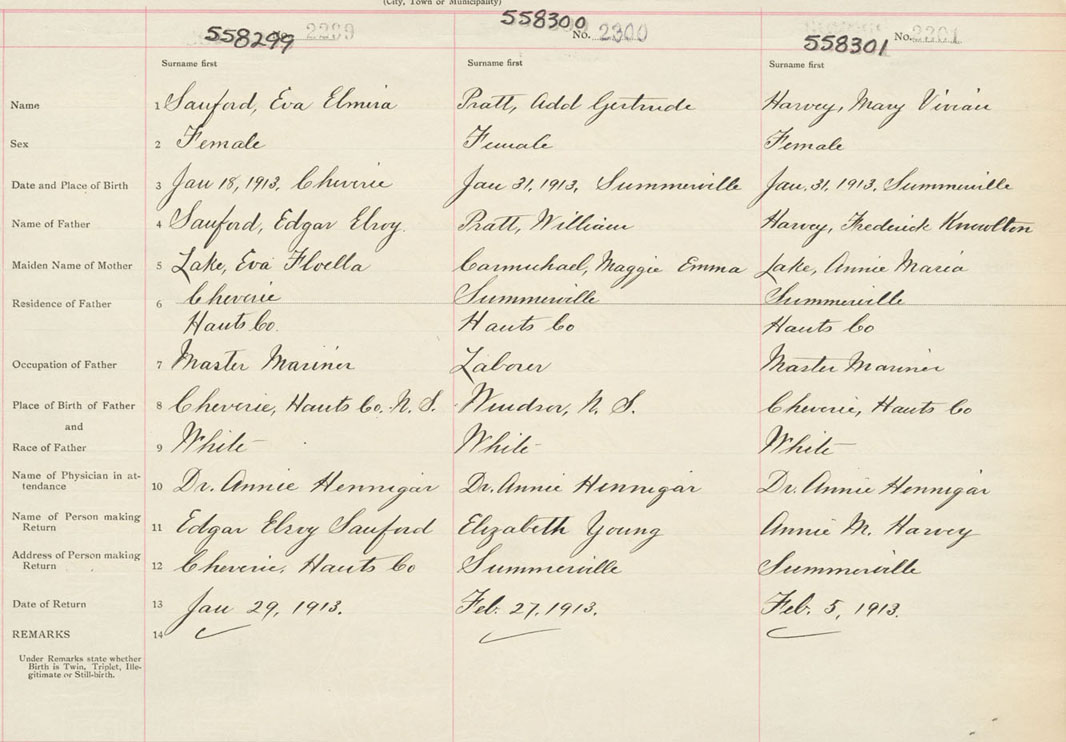 (City, Town or Municipality)
558299 2299
558300 No. 2300
558301 No. 2301
Surname first Surname first Surname first
Name 1 Sanford, Eva Elmira Pratt, Add Gertrude Harvey, Mary Vivian
Sex 2 Female Female Female
Date and Place of Birth 3 Jan 18, 1913, Cheverie Jan 31, 1913, Summerville Jan. 31, 1913, Summerville
Name of Father 4 Sanford, Edgar Elroy Pratt, William Harvey, Frederick Knowlton
Maiden Name of Mother 5 Lake, Eva Floella Carmichael, Maggie Emma Lake, Annie Maria
Residence of Father 6 Cheverie Summerville Summerville
Hants Co. Hants Co Hants Co
Occupation of Father 7 Master Mariner Laborer Master Mariner
Place of Birth of Father 8 Cheverie, Hants Co, N. S. Windsor, N. S. Cheverie, Hants Co
and
Race of Father 9 White White White
Name of Physician in at-
tendance 10 Dr. Annie Hennigar Dr. Annie Hennigar Dr. Annie Hennigar
Name of Person making
Return 11 Edgar Elroy Sanford Elizabeth Young Annie M. Harvey
Address of Person making
Return 12 Cheverie, Hants Co Summerville Summerville
Date of Return 13 Jan 29, 1913. Feb. 27, 1913. Feb. 5, 1913.
REMARKS 14
Under Remarks state whether
Birth is Twin, Triplet, Ille-
gitimate or Still-birth.